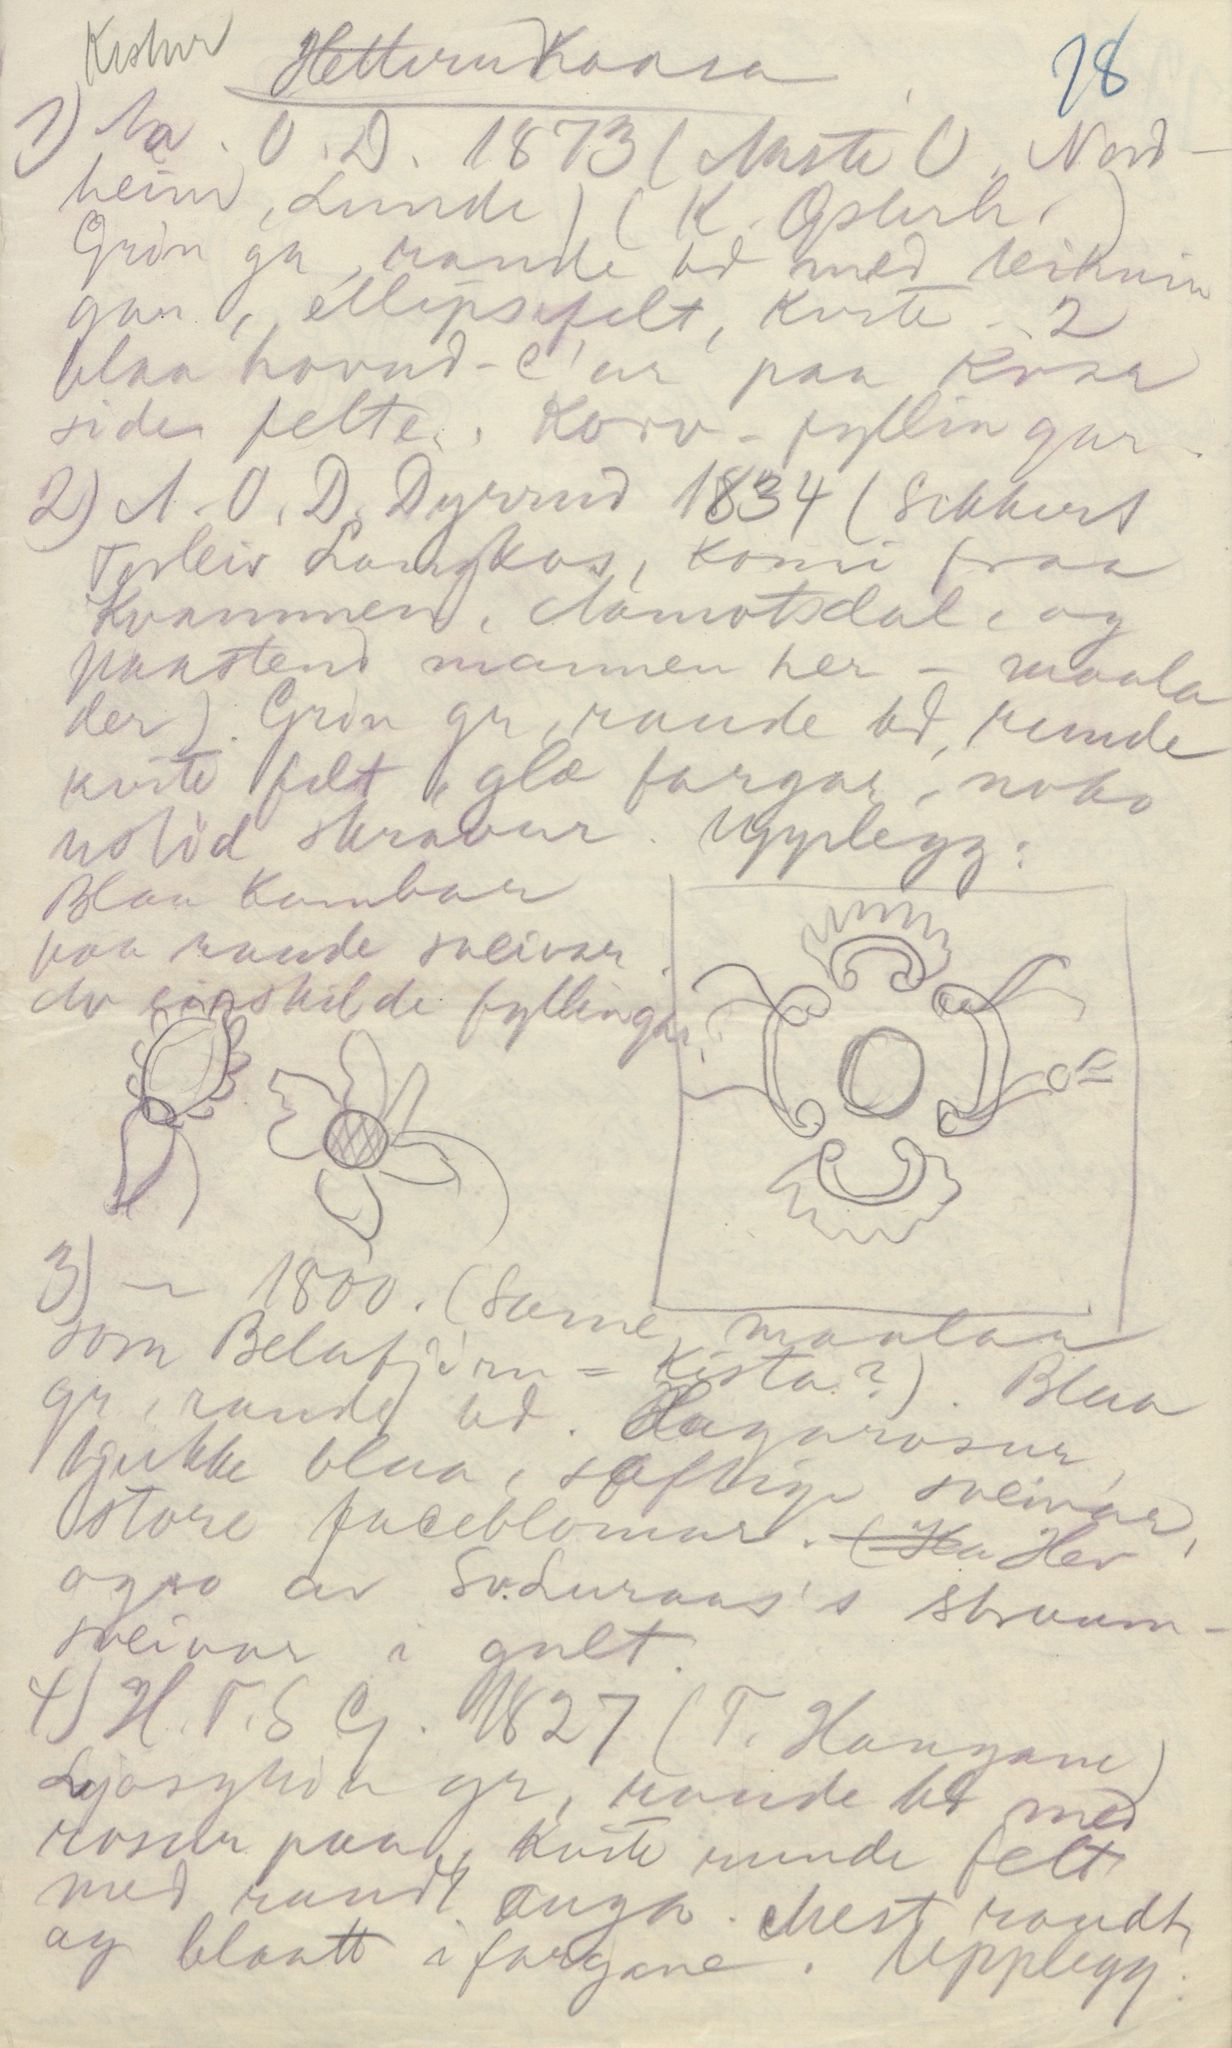 Kistur
Hetterun Kaasa
78
1) Aa. O. D. 1873 (Aaste O. Nord-
heim, Lunde) (K. Osterh.)
Grön gr, raude bd med teiknin
gar, ellipsefelt, kvite - 2
blaa hovud-C'ar paa kvar
side felte. Korv-fyllingar.
2) A. O. D. Dyrrud 1834 (Sikkert
Torleiv Langkos, komi fraa
Kvammen, Aamotsdal, og
paastend mannen her - maala
der). Grön gr, raude bd, runde
kvite felt, glæ fargar, noko
ustöd skravur. Upplegg:
Blaa Kambar
paa raude sveivar.
Av einskilde fyllingar.
3) ~ 1800. (Same maalar
som Belafjörn = kista?). Blaa
gr, raude bd. Hagarosur,
tjukke blaa, saftige sveivar,
store faceblomar. Hev
ogso av Sv. Luraas's straum-
sveivar i gult.
4) H. T. S G. 1827 (T. Haugane)
Ljosgrön gr, raude bd med
rosur paa, kvite runde felt
med raudt auga. Mest raudt
og blaatt i fargane. Upplegg: